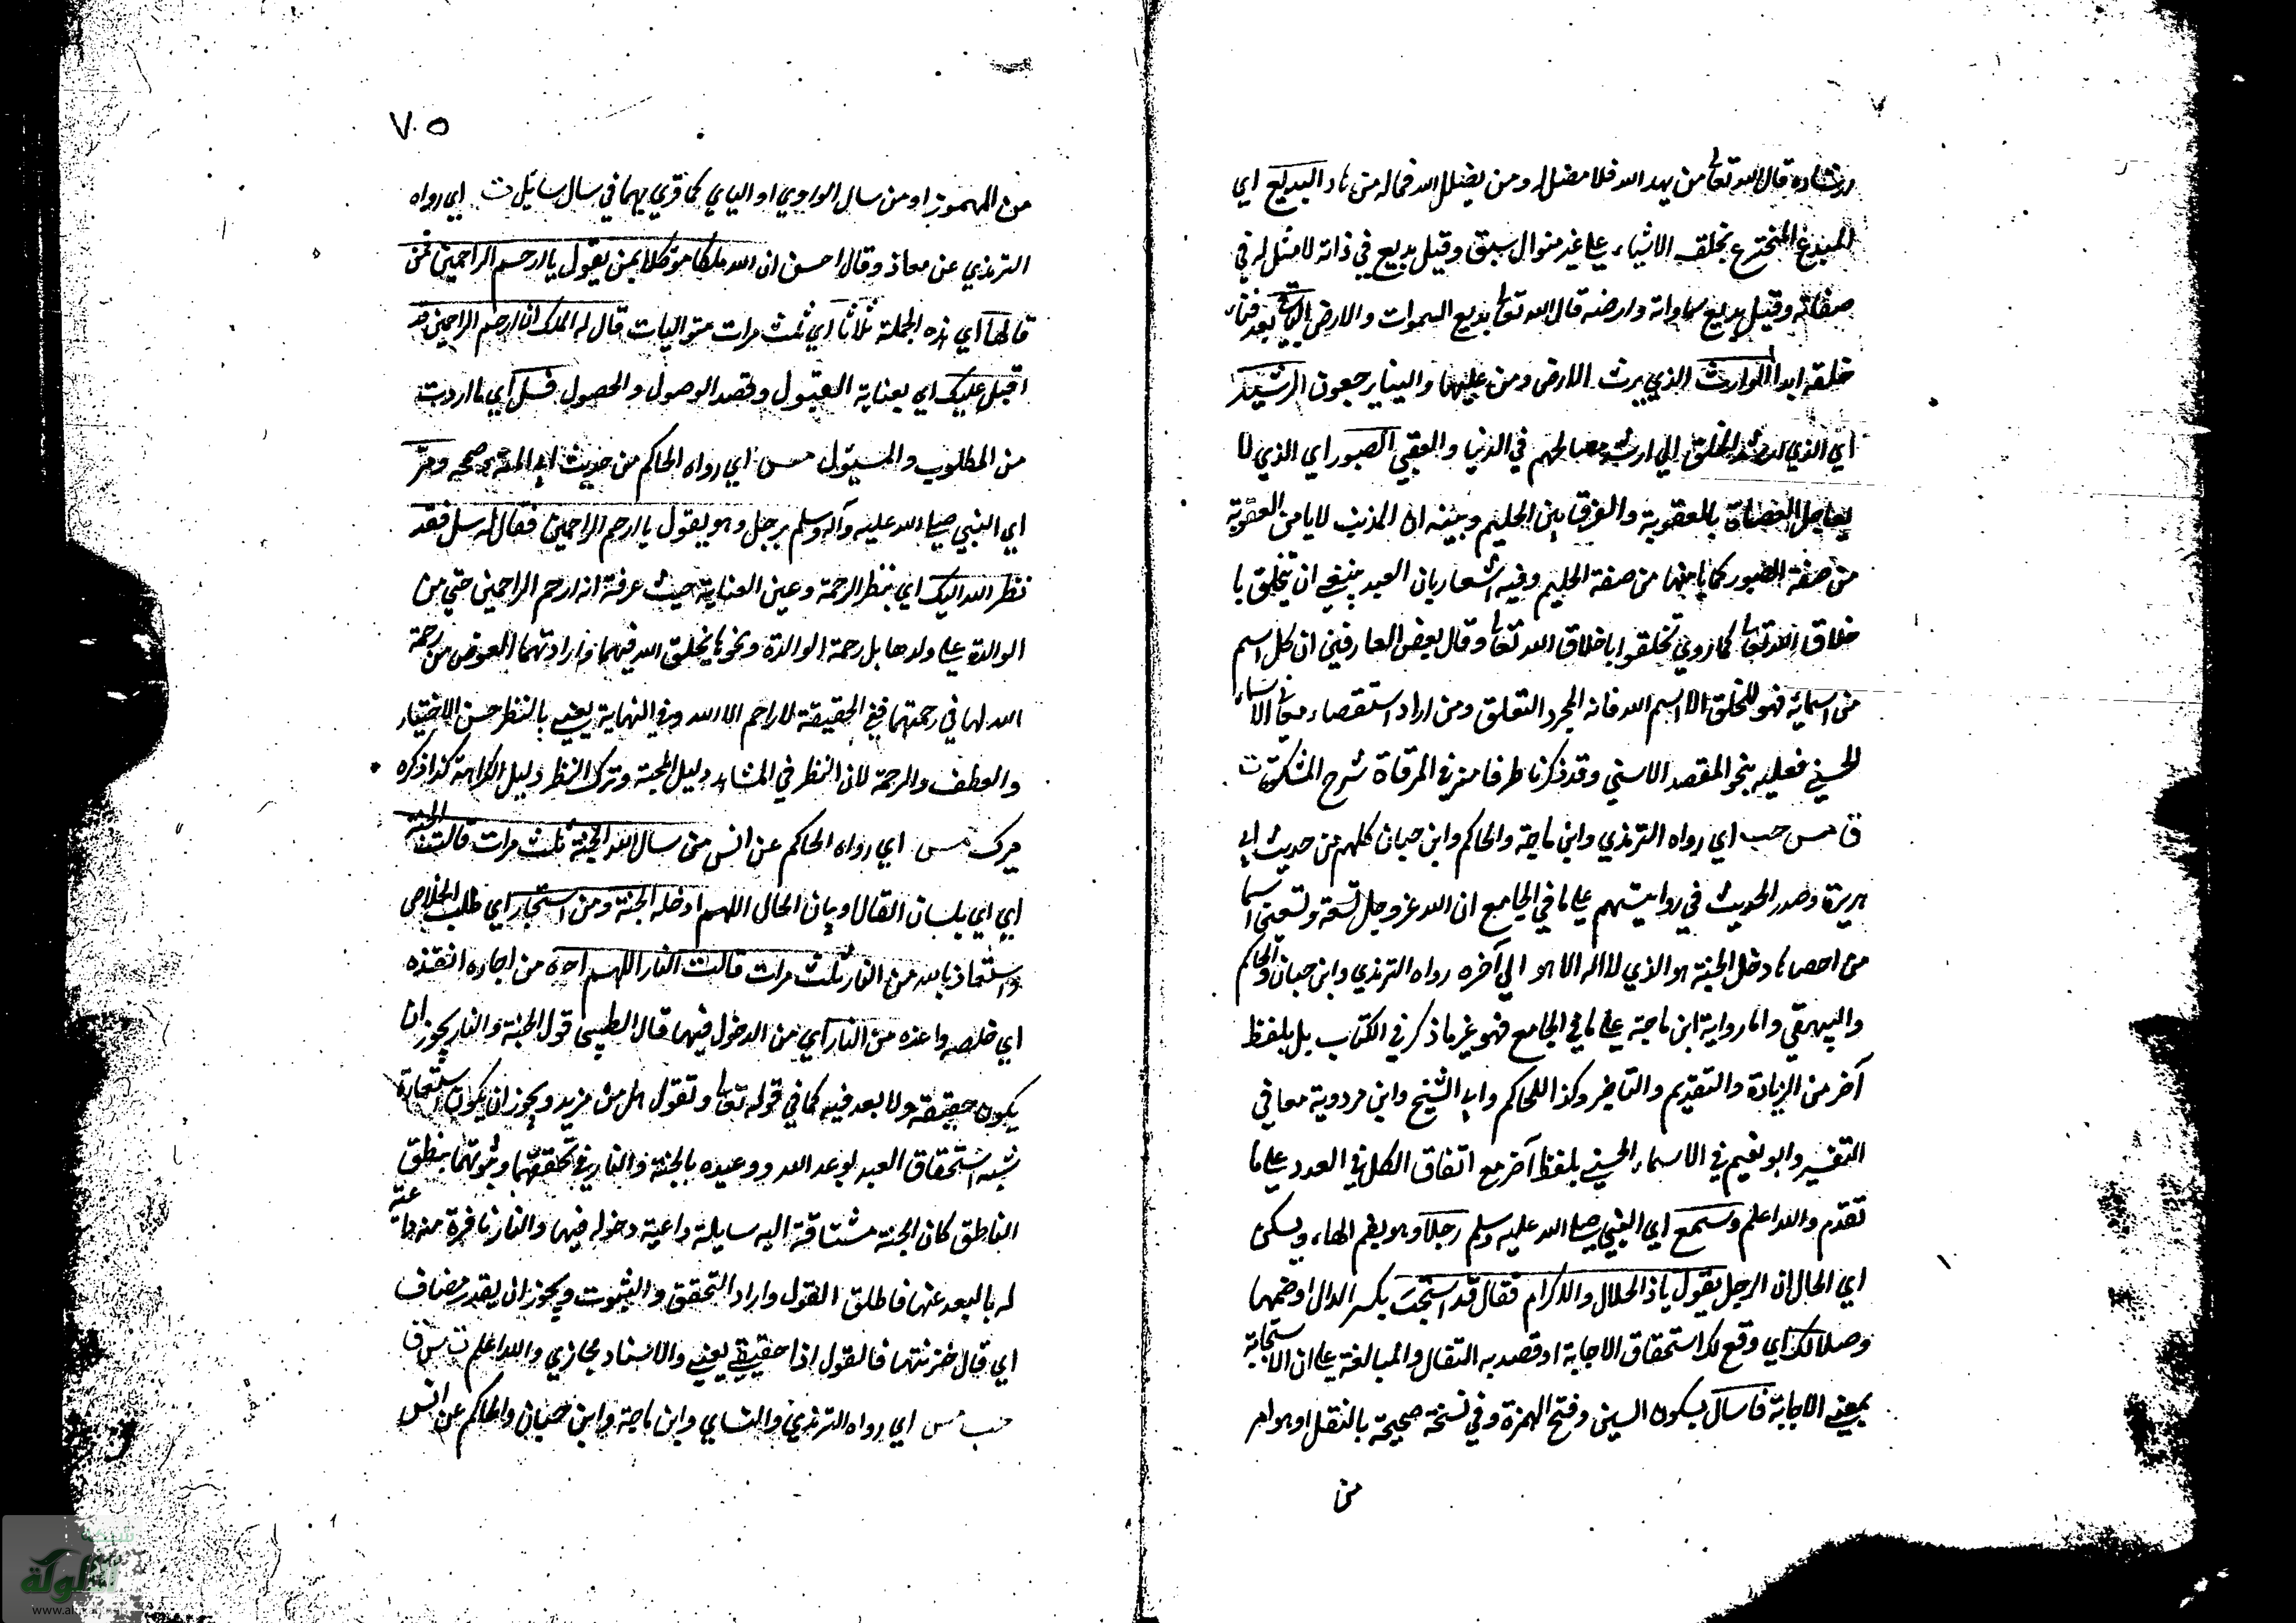 رشاده قال الله تعالى من يهد الله فلا مضل له ومن يضلل الله فما له من هاد البديع اي
المبدع المخترع بخلقه الاشياء على غير منوال سبق وقيل بديع في ذاته لا مثل له في
صفاته وقيل بديع سماواته وارضه قال الله تعالى بديع السموات والارض الباقي بعد فناء
خلقه ابدا الوارث الذي يرث الارض ومن عليها والينا يرجعون الرشيد
اي الذي ارشد الخلق الى ارشد مصالحهم في الدنيا والعقبى الصبور اي الذي لا
يعاجل العصاة بالعقوبة والفرق بين الحليم وبينه ان المذنب لا يامن العقوبة
من صفة الصبور كما يامنها من صفة الحليم وفيه اشعار بان العبد ينبغي ان يتخلق با
خلاق الله تعالى كما روي تخلقوا باخلاق الله تعالى وقال بعض العارفين ان كل اسم
من اسمائه فهو للتخلق الا اسم الله فانه لمجرد التعلق ومن اراد استقصاء معاني الاسماء
الحسنى فعليه بنحو المقصد الاسنى وقد ذكرنا طرفا منه في المرقاة شرح المشكوة ت
ق مس حب اي رواه الترمذي وابن ماجة والحاكم وابن حبان كلهم من حديث ابي
هريرة وصدر الحديث في روايتهم على ما في الجامع ان الله عز وجل تسعة وتسعين اسما
من احصاها دخل الجنة هو الذي لا اله الا هو الى آخره رواه الترمذي وابن حبان والحاكم
والبيهقي واما رواية ابن ماجة على ما في الجامع فهو غير ما ذكر في الكتاب بل بلفظ
آخر من الزيادة والتقديم والتاخير وكذا للحاكم وابي الشيخ وابن مردوية معا في
التفسير وابو نعيم في الاسماء الحسنى بلفظ آخر مع اتفاق الكل في العدد على ما
تقدم والله اعلم وسمع اي النبي صلى الله عليه وسلم رجلا وهو بضم الهاء ويسكن
اي الحال ان الرجل يقول يا ذا الجلال والاكرام فقال قد استجب بكسر الدال او ضمها
وصلا لك اي وقع لك استحقاق الاجابة او قصد به التفال والمبالغة على ان الاستجابة
بمعنى الاجابة فاسال بسكون السين وفتح الهمزة وفي نسخة صحيحة بالنقل او هو امر
من
٧٠٥
من المهموز او من سال الواوي او اليايي كما قري بهما في سال سايل ت اي رواه
الترمذي عن معاذ وقال حسن ان لله ملكا موكلا بمن يقول يا ارحم الراحمين فمن
قالها اي هذه الجملة ثلاثا اي ثلث مرات متواليات قال له الملك ان ارحم الراحمين قد
اقبل عليك اي بعناية القبول وقصد الوصول والحصول فسل اي ما اردت
من المطلوب والمسئول مس اي رواه الحاكم من حديث ابي امامة وصححه ومر
اي النبي صلى الله عليه وآله وسلم برجل وهو يقول يا ارحم الراحمين فقال له سل فقد
نظر الله اليك اي بنظر الرحمة وعين العناية حيث عرفة انه ارحم الراحمين حتى من
الوالدة على ولدها بل رحمة الوالدة ونحوها بخلق الله فيهما وارادتهما العوض من رحمة
الله لهما في رحمتهما ففي الحقيقة لا راحم الا الله وفي النهاية يعنى بالنظر حسن الاختيار
والعطف والرحمة لان النظر في المشاهد دليل المحبة وترك النظر دليل الكراهة كذا ذكره
ميرك مس اي رواه الحاكم عن انس من سال الله الجنة ثلث مرات قالت الجنة
اي اي بلسان القال او بيان الحال اللهم ادخله الجنة ومن استجار اي طلب الخلاص
واستعاذ بالله من النار ثلث مرات قالت النار اللهم اجره من اجاره انقذه
اي خلصه واعذه من النار اي من الدخول فيها قال الطيبي قول الجنة والنار يجوز ان
يكون حقيقة ولا بعد فيه كما في قوله تعالى وتقول هل من مزيد ويجوز ان يكون استعارة
شبه استحقاق العبد لوعد الله ووعيده بالجنة والنار في تحققهما وثبوتهما بنطق
الناطق كان الجنة مشتاقة اليه سايلة داعية دخوله فيها والنار نافرة منه داعية
له بالبعد عنها فاطلق القول واراد التحقق والثبوت ويجوز ان يقدر مضاف
اي قال خزنتها فالقول اذا حقيقي يعنى والاسناد مجازي والله اعلم ت س ق
حب مس اي رواه الترمذي والنسايي وابن ماجة وابن حبان والحاكم عن انس